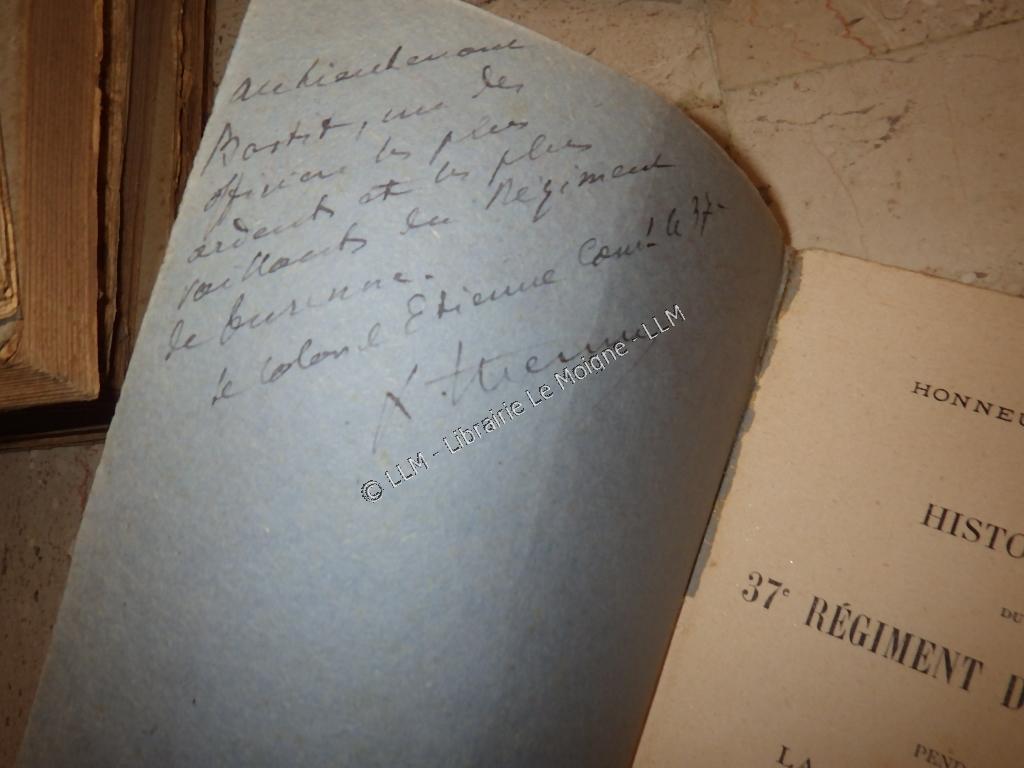 au lieutenant
Bastit, un des
officiers les plus
ardents et les plus
vaillants du Régiment
de Turenne.
Le Colonel Etienne Comt le 37e
Etienne
© LLM - Librairie Le Moigne - LLM
HONNEU
HISTO
DU
37e RÉGIMENT D
PEND
LA